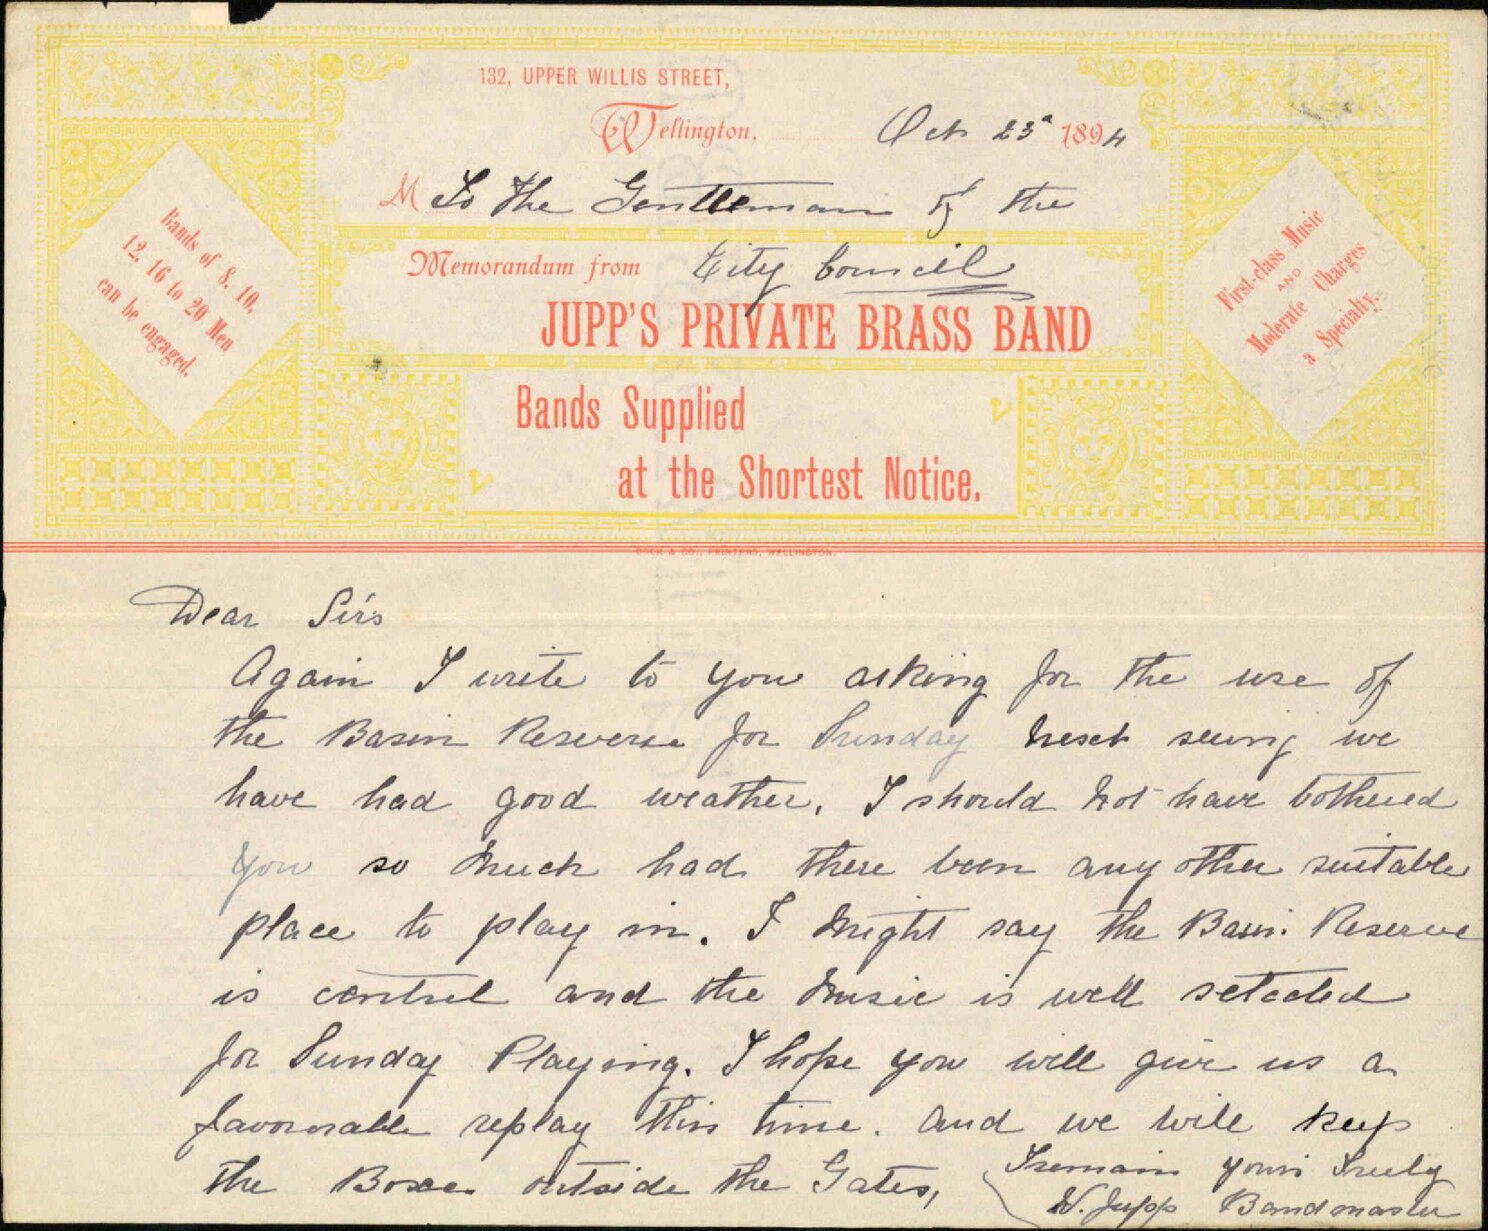 132, UPPER WILLIS STREET,
Wellington, Oct 23ᵈ 1894
M To the Gentlemain of the
City Council
Memorandum from
JUPP'S PRIVATE BRASS BAND
Bands Supplied
at the Shortest Notice.
Bands of 8, 10,
12, 16 to 20 Men
can be engaged.
First-class Music
AND
Moderate Charges
a Specialty.
BOCK & CO., PRINTERS, WELLINGTON.
Dear Sirs
Again I write to you asking for the use of
the Basin Reserve for Sunday next seeing we
have had good weather. I should not have bothered
you so much had there been any other suitable
place to play in. I might say the Basin Reserve
is central and the music is well selected
for Sunday Playing. I hope you will give us a
favourable replay this time. and we will keep
the Boxes outside the Gates,
I remain yours Truly
W. Jupp Bandmaster